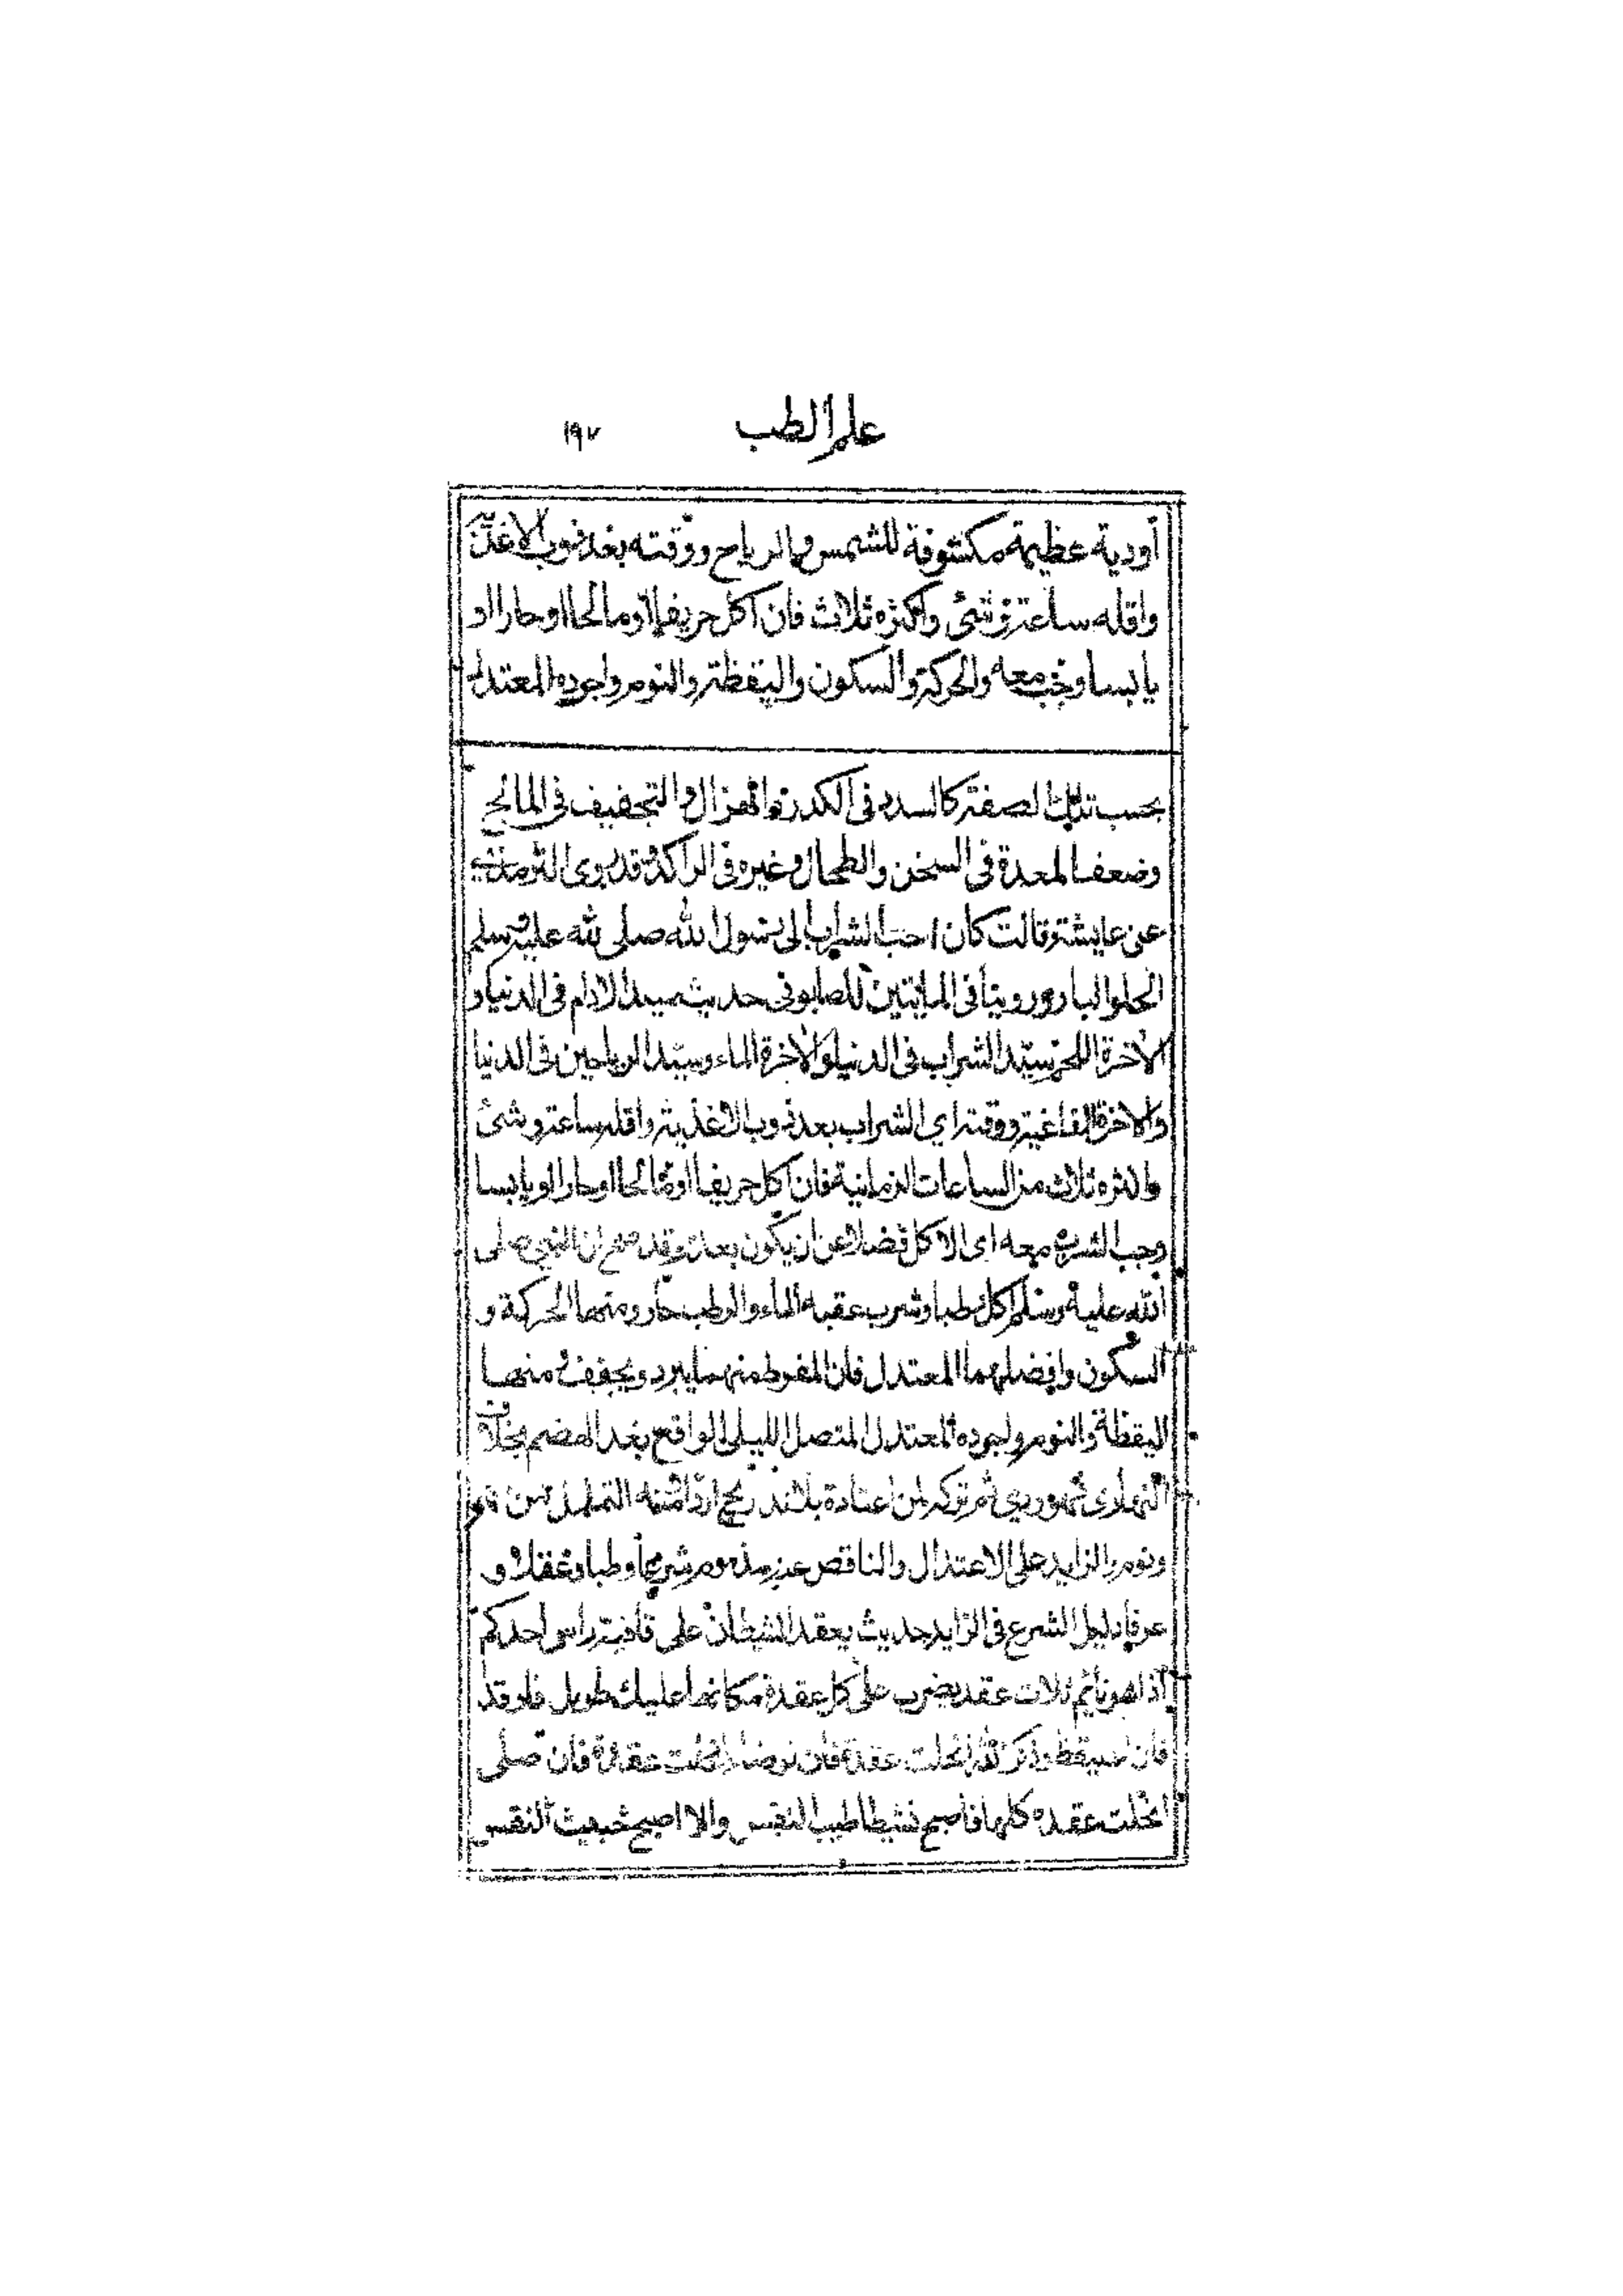 علم الطب ١٩٧
أودية عظيمة مكشوفة للشمس والرياح ووقته بعد ذوب الاغذية
واقله ساعة وشئ واكثره ثلاث فان اكل حريفا او مالحا او حارا او
يابسا وجب معه والحركة والسكون واليقظة والنوم واجوده المعتدل
بحسب تلك الصفة كالسدد فى الكدر والهزال والتجفيف فى المالح
وضعف المعدة فى السخن والطحال وغيره فى الراكد وقد روى الترمذى
عن عايشة قالت كان احب الشراب الى رسول الله صلى الله عليه وسلم
الحلو البارد وروينا فى المايتين للصابونى حديث سيد الادام فى الدنيا و
الاخرة اللحم وسيد الشراب فى الدنيا والاخرة الماء وسيد الرياحين فى الدنيا
والاخرة الفاغية ووقته اي الشراب بعد ذوب الاغذية واقله ساعة وشئ
واكثره ثلاث من الساعات الزمانية فان اكل حريفا او مالحا او حارا او يابسا
وجب الشرب معه اى الاكل فضلا عن ان يكون بعده وقد صح ان النبى صلى
الله عليه وسلم اكل رطبا وشرب عقبه الماء والرطب حار ومنها الحركة و
السكون وافضلهما المعتدل فان المفرط منهما يبرد ويجفف ومنها
اليقظة والنوم واجوده المعتدل المتصل الليلى الواقع بعد الهضم بخلاف
النهارى فهو ردي ثم تركه لمن اعتاده بلا تدريج اردا منه التململ بين نوم
ونوم والزايد على الاعتدال والناقص عنه مذموم شرعا وطبا وعقلا و
عرفا دليل الشرع فى الزايد حديث يعقد الشيطان على قافية راس احدكم
اذا هو نائم ثلاث عقد يضرب على كل عقدة مكانها عليك طويل فارقد
فان استيقظ وذكر الله انحلت عقدة فان توضا انحلت عقدة فان صلى
انحلت عقده كلها فاصبح نشيطا طيب النفس والا اصبح خبيث النفس